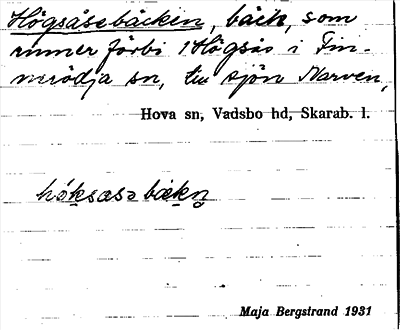 Högsåsabäcken, bäck, som
rinner förbi 1 Högsås i Fin-
nerödja sn, till sjön Narven,
Hova sn, Vadsbo hd, Skarab. l.
Maja Bergstrand 1931